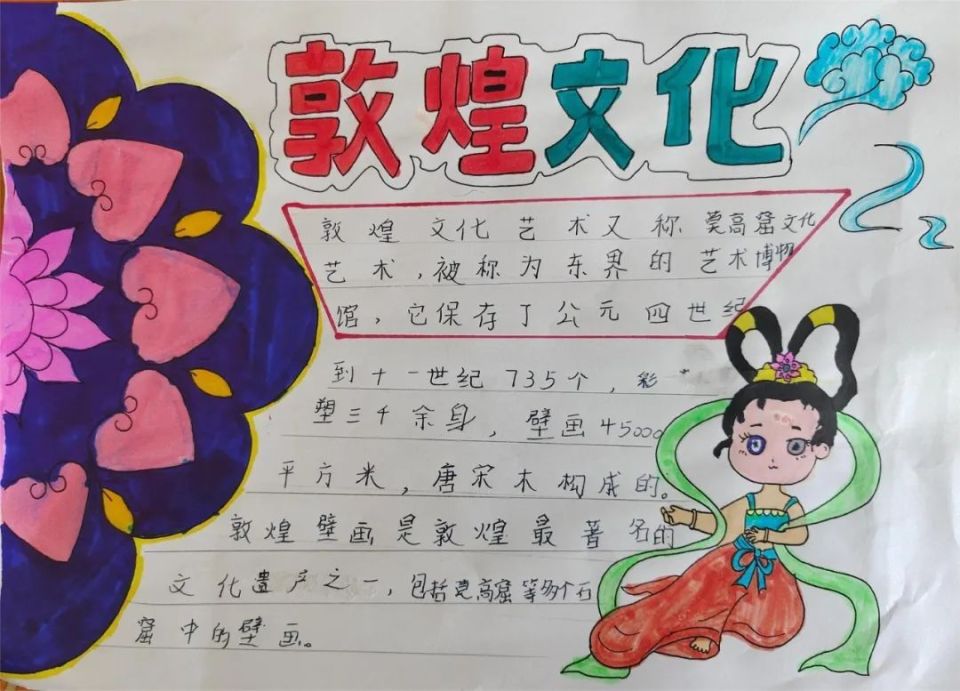 敦煌文化
敦煌文化艺术又称莫高窟文化
艺术,被称为东界的艺术博物
馆,它保存了公元四世纪
到十一世纪735个,彩
塑三千余身,壁画45000
平方米,唐宋木构成的。
敦煌壁画是敦煌最著名的
文化遗产之一,包括莫高窟等多个石
窟中的壁画。